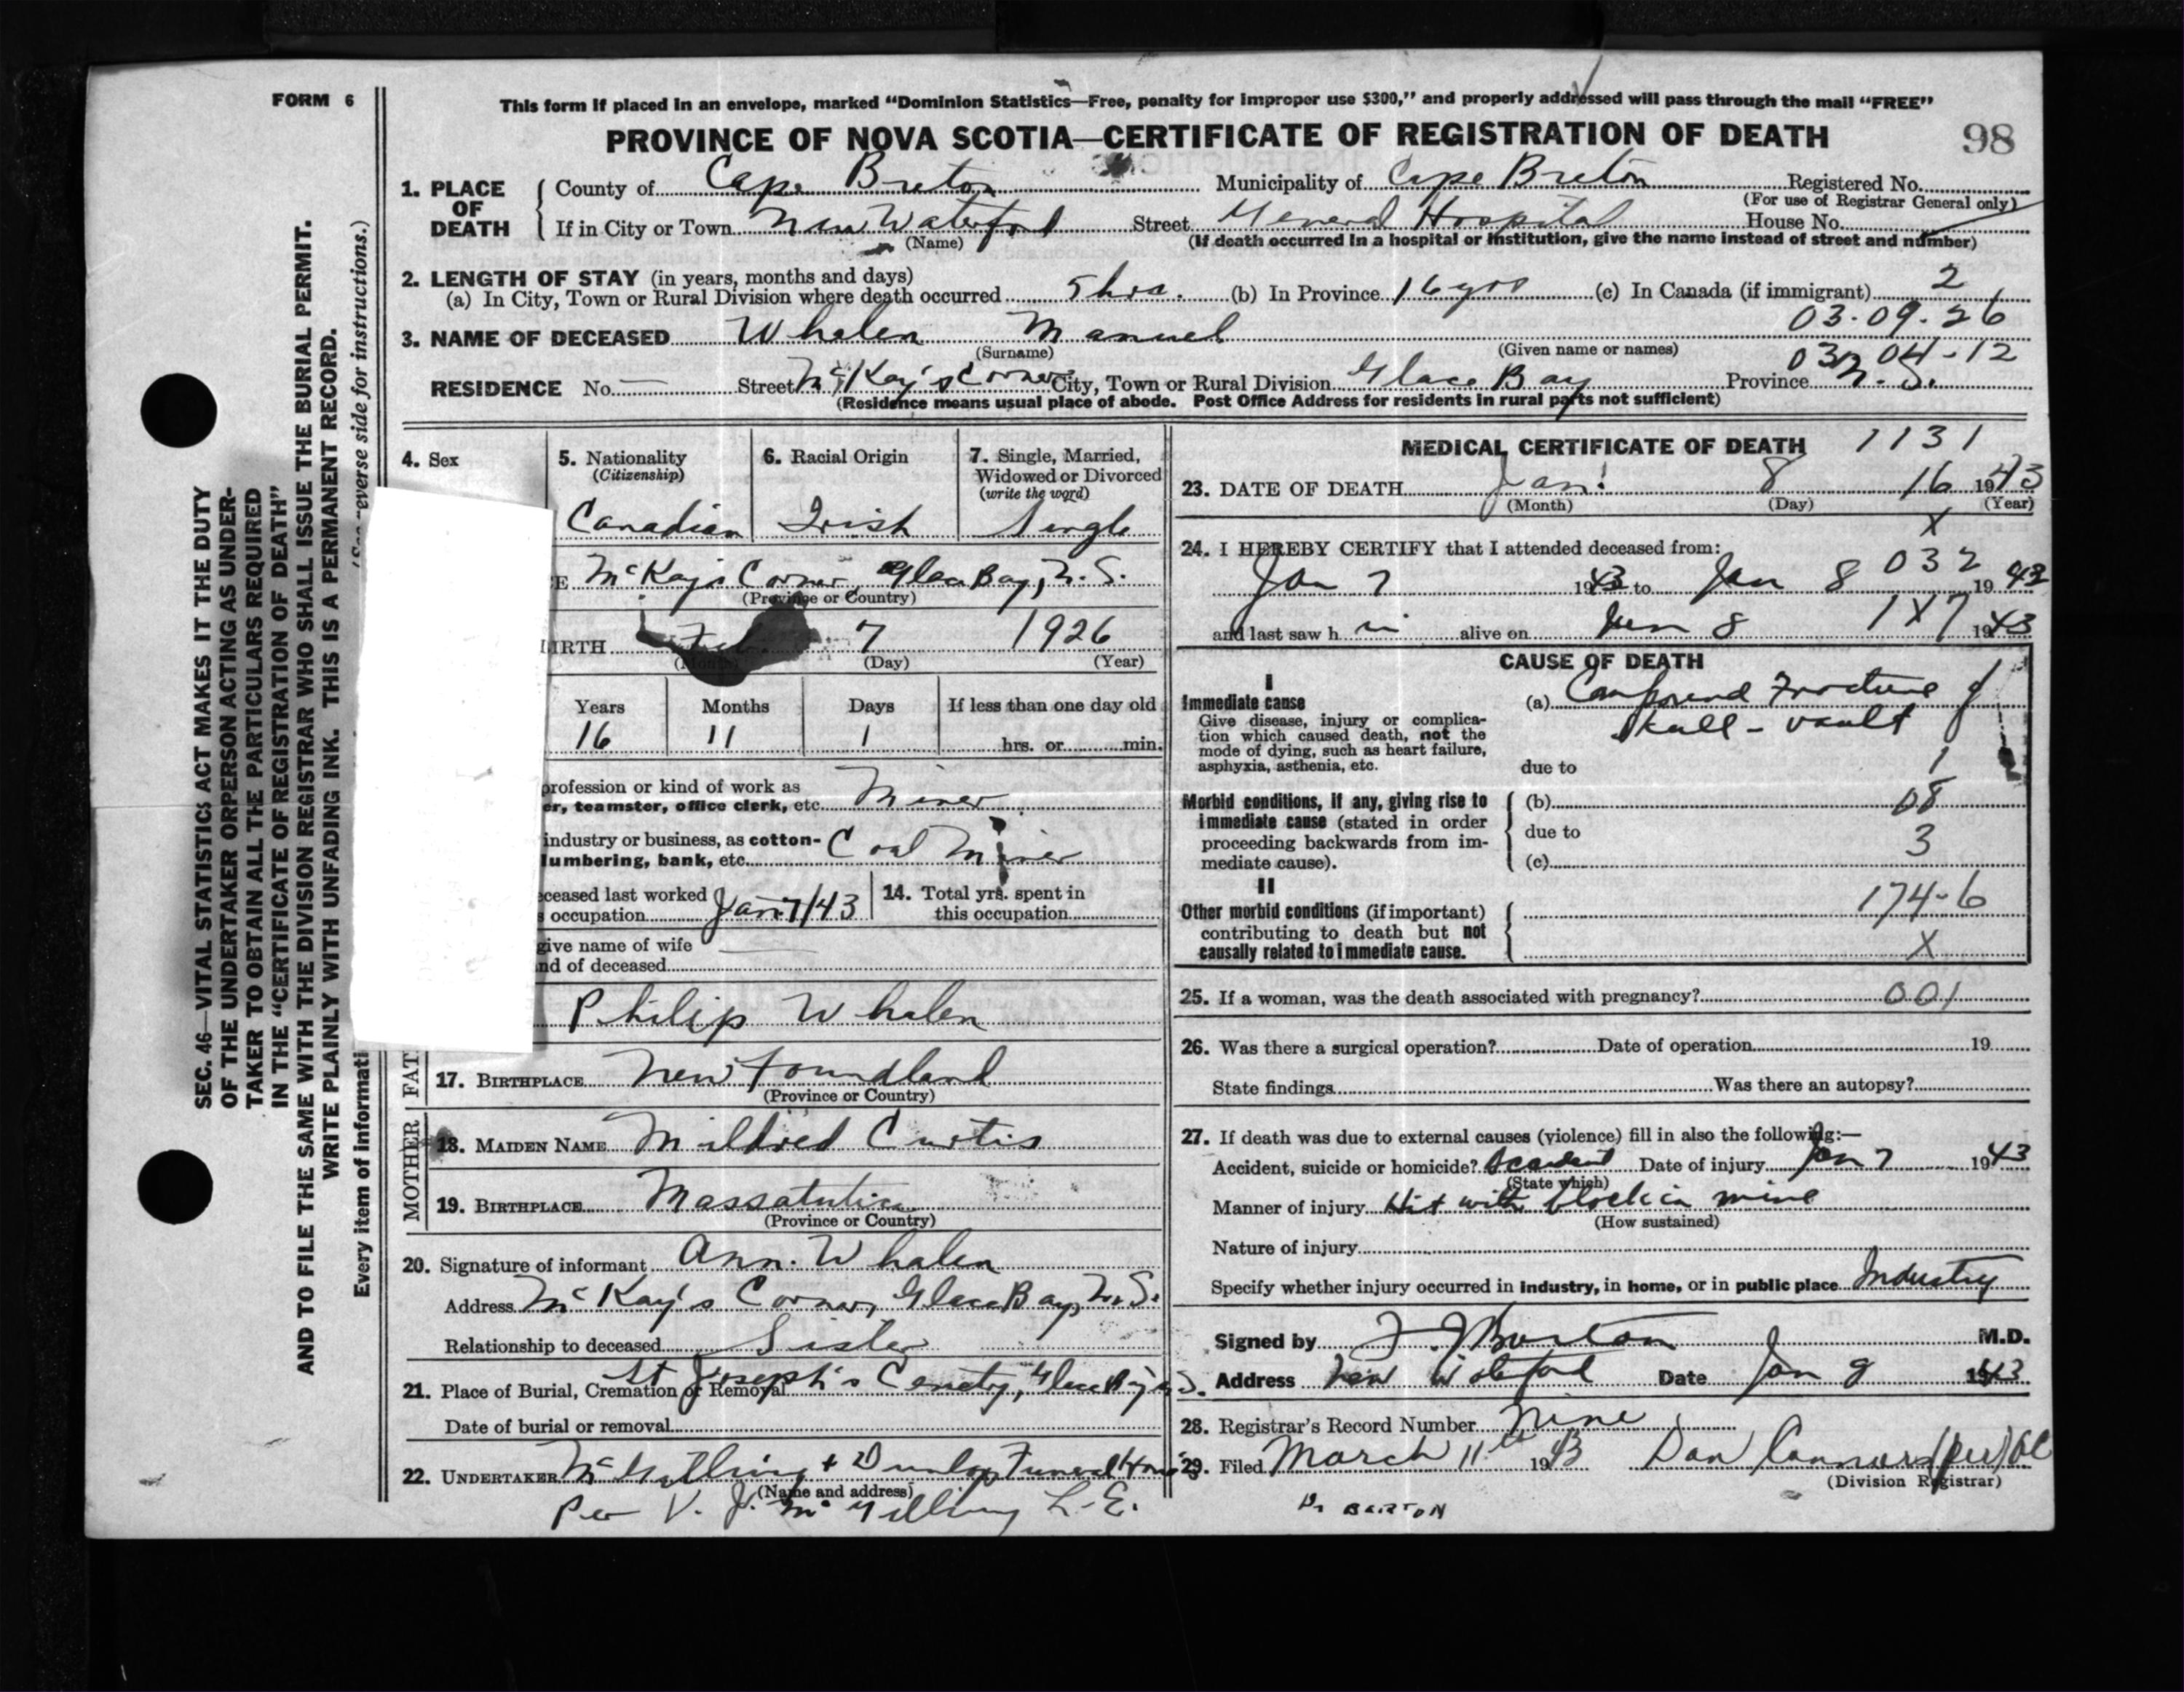 FORM 6
This form if placed in an envelope, marked “Dominion Statistics—Free, penalty for improper use $300,” and properly addressed will pass through the mail “FREE”
PROVINCE OF NOVA SCOTIA—CERTIFICATE OF REGISTRATION OF DEATH 98
1. PLACE OF DEATH County of Cape Breton Municipality of Cape Breton Registered No.
(For use of Registrar General only)
If in City or Town New Waterford Street General Hospital House No.
(Name) (If death occurred in a hospital or institution, give the name instead of street and number)
2. LENGTH OF STAY (in years, months and days)
(a) In City, Town or Rural Division where death occurred 5 hrs. (b) In Province 16 yrs (c) In Canada (if immigrant) 2
03-09-26
3. NAME OF DECEASED Whalen Manuel
(Surname) (Given name or names)
03 04-12
RESIDENCE No. — Street McKay's Corner City, Town or Rural Division Glace Bay Province N.S.
(Residence means usual place of abode. Post Office Address for residents in rural parts not sufficient)
4. Sex
5. Nationality (Citizenship)
Canadian
6. Racial Origin
Irish
7. Single, Married, Widowed or Divorced (write the word)
Single
E McKay's Corner Glace Bay, N.S.
(Province or Country)
IRTH Feb 7 1926
(Month) (Day) (Year)
Years Months Days If less than one day old
16 11 1 hrs. or min.
profession or kind of work as
er, teamster, office clerk, etc. Miner
industry or business, as cotton-
lumbering, bank, etc. Coal Miner
eceased last worked
s occupation Jan 7/43
14. Total yrs. spent in this occupation
give name of wife
nd of deceased
Philip Whalen
FAT
17. BIRTHPLACE Newfoundland
(Province or Country)
MOTHER
18. MAIDEN NAME Mildred Curtis
19. BIRTHPLACE
(Province or Country)
20. Signature of informant Ann. Whalen
Address McKay's Corner, Glace Bay, N.S.
Relationship to deceased Sister
21. Place of Burial, Cremation or Removal St Joseph's Cemetry, Glace Bay N.S.
Date of burial or removal
22. UNDERTAKER + Dunlop Funeral Home
(Name and address)
Per V. J. L.E.
MEDICAL CERTIFICATE OF DEATH 1131
23. DATE OF DEATH Jan. 8 16 1943
(Month) (Day) (Year)
X
24. I HEREBY CERTIFY that I attended deceased from:
032
Jan 7 1943 to Jan 8 1943
and last saw h im alive on Jan 8 1X7 1943
CAUSE OF DEATH
I
Immediate cause
Give disease, injury or complication which caused death, not the mode of dying, such as heart failure, asphyxia, asthenia, etc.
(a) Compound Fracture of
Skull - vault
due to 1
Morbid conditions, if any, giving rise to immediate cause (stated in order proceeding backwards from immediate cause).
(b) 08
due to 3
(c)
II
Other morbid conditions (if important) contributing to death but not causally related to immediate cause.
174-6
X
25. If a woman, was the death associated with pregnancy? 001
26. Was there a surgical operation? Date of operation 19
State findings Was there an autopsy?
27. If death was due to external causes (violence) fill in also the following:—
Accident, suicide or homicide? Accident Date of injury Jan 7 1943
(State which)
Manner of injury Hit with block in mine
(How sustained)
Nature of injury
Specify whether injury occurred in industry, in home, or in public place Industry
Signed by Burton M.D.
Address New Waterford Date Jan 9 1943
28. Registrar's Record Number Nine
29. Filed March 11th 1943 Dan Connors (per)
(Division Registrar)
Dr BARTON
SEC. 46—VITAL STATISTICS ACT MAKES IT THE DUTY
OF THE UNDERTAKER OR PERSON ACTING AS UNDER-
TAKER TO OBTAIN ALL THE PARTICULARS REQUIRED
IN THE “CERTIFICATE OF REGISTRATION OF DEATH”
AND TO FILE THE SAME WITH THE DIVISION REGISTRAR WHO SHALL ISSUE THE BURIAL PERMIT.
WRITE PLAINLY WITH UNFADING INK. THIS IS A PERMANENT RECORD.
Every item of informati (See reverse side for instructions.)